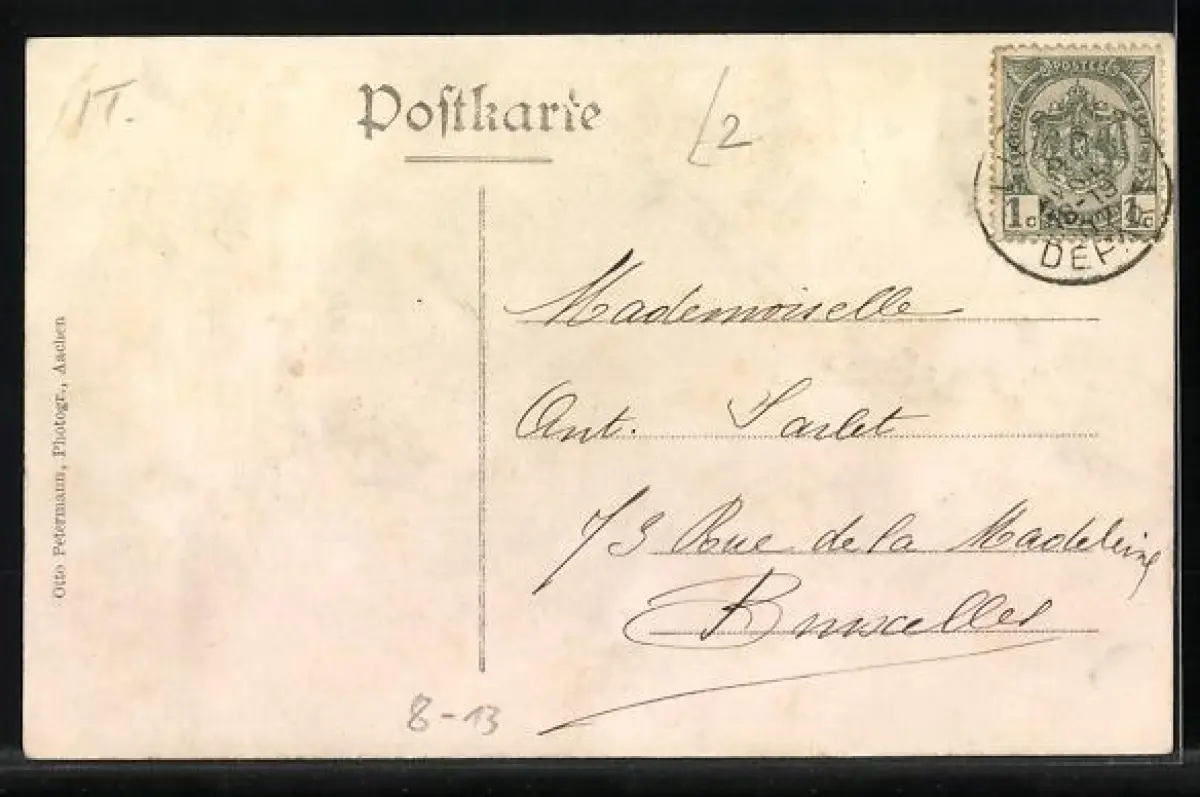 IT.
Postkarte
L2
POSTES
1c 1c
DEP.
Mademoiselle
Ant. Sarlet
73 Rue de la Madeleine
Bruxelles
8-13
Otto Petermann, Photogr., Aachen